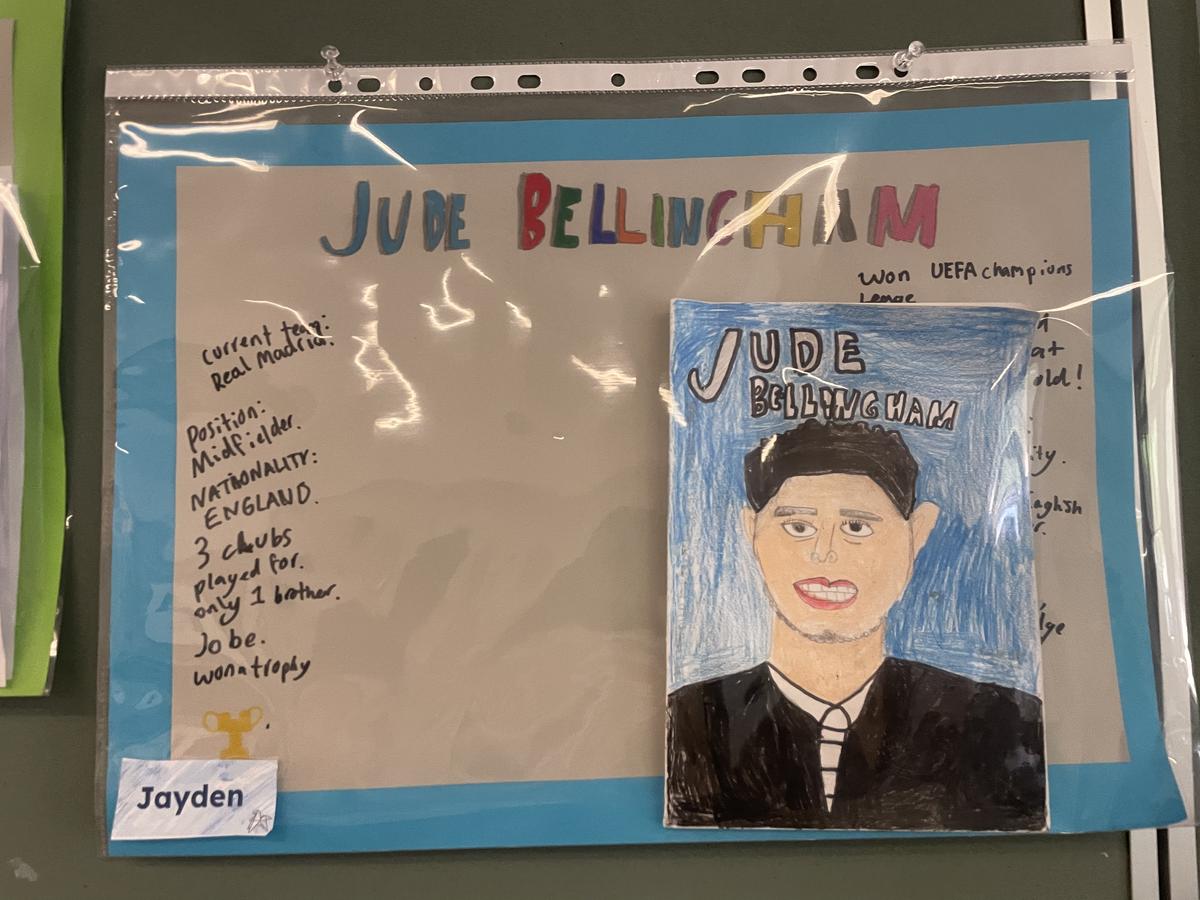 JUDE BELLINGHAM
current team:
Real Madrid.
Position:
Midfielder.
NATIONALITY:
ENGLAND.
3 clubs
played for.
only 1 brother.
Jobe.
won a trophy
Jayden
Won UEFA champions
leage
old!
JUDE
BELLINGHAM